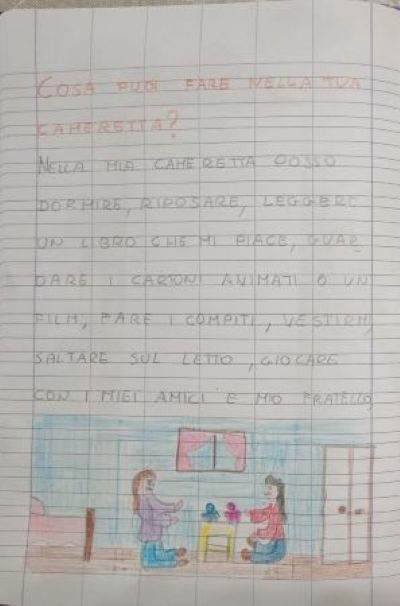 COSA PUOI FARE NELLA TUA
CAMERETTA?
NELLA MIA CAMERETTA POSSO
DORMIRE, RIPOSARE, LEGGERE
UN LIBRO CHE MI PIACE, GUAR_
DARE I CARTONI ANIMATI O UN
FILM, FARE I COMPITI, VESTIRMI,
SALTARE SUL LETTO, GIOCARE
CON I MIEI AMICI E MIO FRATELLO,